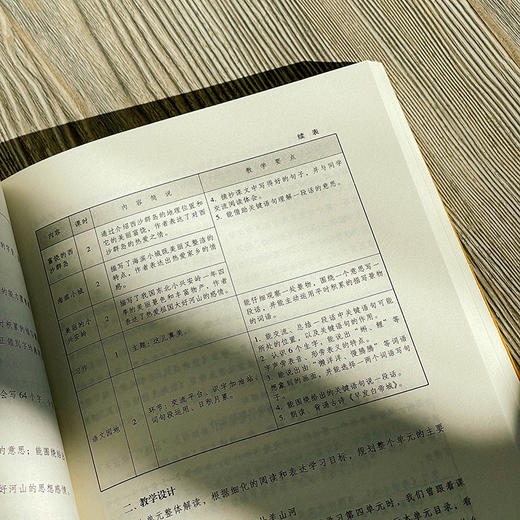 续 表
内容 课时 内 容 简 说 教 学 要 点
4. 摘抄课文中写得好的句子，并与同学
交流阅读体会。
5. 能借助关键语句理解一段话的意思。
富饶的西
沙群岛
2
通过介绍西沙群岛的地理位置和
它的美丽富饶，作者表达了对西
沙群岛的热爱之情。
海滨小城
2
描写了海滨小城既美丽又整洁的
特点，作者表达出热爱家乡的情
感。
美丽的小
兴安岭
2
描写了我国东北小兴安岭一年四
季的美丽景色和丰富物产，作者
表达了热爱祖国大好河山的感情。
习作
1
主题：这儿真美。
能仔细观察一处景物，围绕一个意思写一
段话，并能主动运用平时积累的描写景物
的词语。
语文园地
2
环节：交流平台、识字加油站、
词句段运用、日积月累。
1. 能交流、总结一段话中关键语句可能
所处的位置，以及关键语句的作用。
2. 认识6个生字，能说出
字声旁表音、形旁表义的特点。
3. 能说出由“懒洋洋、慢腾腾”等词语
想象到的画面，并能选择一两个词语写句
子。
4. 能围绕给出的关键语句说一段话。
5. 朗读、背诵古诗《早发白帝城》。
二、教学设计
单元整体解读，根据细化的阅读和表达学习目标，规划整个单元的主要
山河
学习第四单元时，我们曾跟着课
本单元目录，看
积累的
会写 64 个字，
的意思；能围绕
好河山的思想感情。